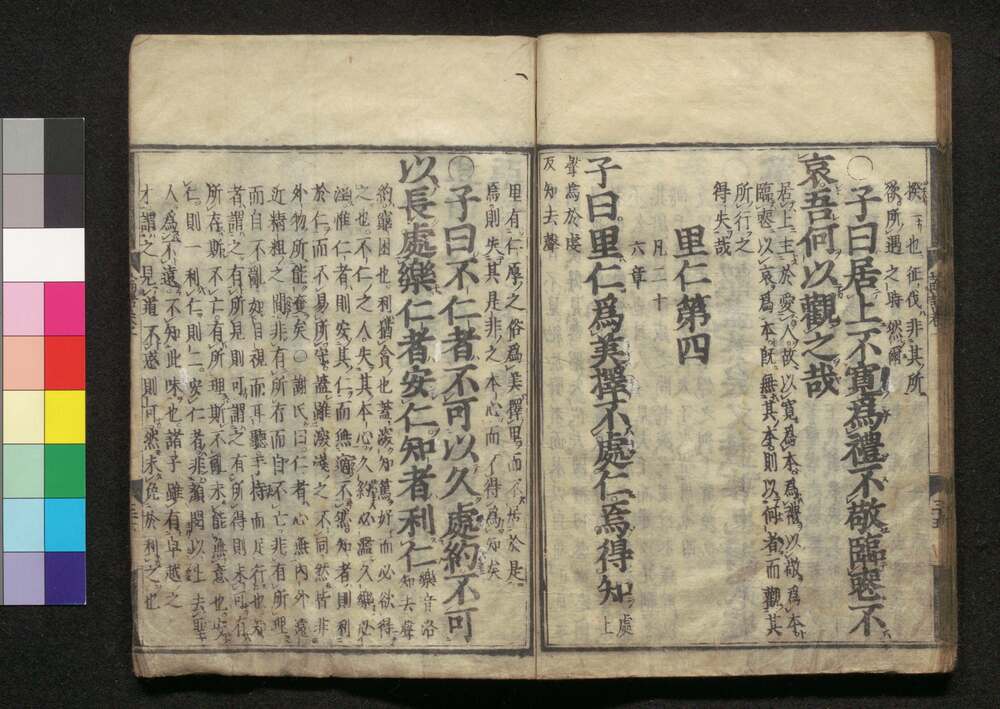 揆一也征伐非其所
欲所遇之時然爾
○子曰居上不寬爲禮不敬臨喪不
哀吾何以觀之哉
居上主於愛人故以寬爲本爲禮以敬爲本
臨喪以哀爲本既無其本則以何者而觀其
所行之
得失哉
里仁第四
凡二十
六章
子曰里仁爲美擇不處仁焉得知
處上
聲焉於虔
反知去聲
里有仁厚之俗爲美擇里而不居於是
焉則失其是非之本心而不得爲知矣
子曰不仁者不可以久處約不可
以長處樂仁者安仁知者利仁
樂音洛
知去聲
約窮困也利猶貪也蓋深知篤好而必欲得
之也不仁之人失其本心久約必濫久樂必
淫惟仁者則安其仁而無適不然知者則利
於仁而不易所守蓋雖深淺之不同然皆非
外物所能奪矣○謝氏曰仁者心無內外遠
近精粗之間非有所存而自不亡非有所理
而自不亂如目視而耳聽手持而足行也知
者謂之有所見則可謂之有所得則未可有
所存斯不亡有所理斯不亂未能無意也安
仁則一利仁則二安仁者非顏閔以上去聖
人爲不遠不知此味也諸子雖有卓越之
才謂之見道不惑則可然未免於利之也